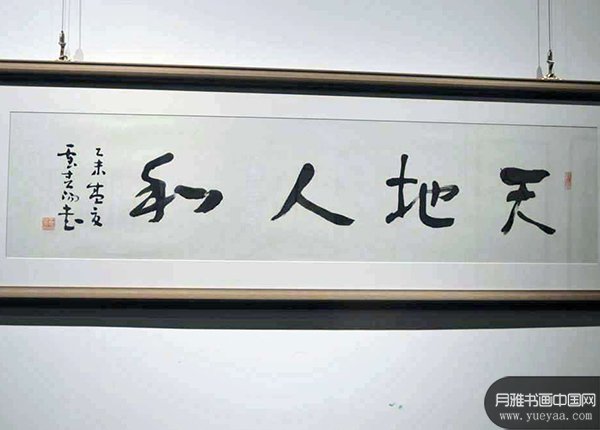 天地人和
乙未春夏
月雅书画中国网
www.yueyaa.com